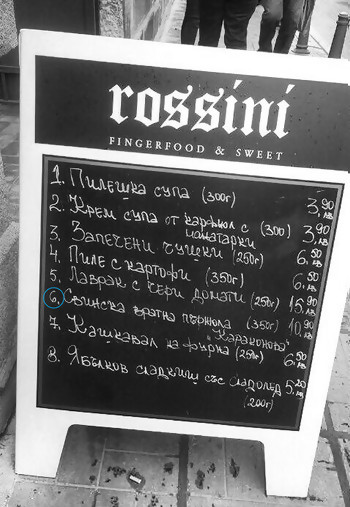 rossini
FINGERFOOD & SWEET
1. Пилешка супа (300г) 3,90 лв
2. Крем супа от карфиол с (300) 3,90 лв
манатарки
3. Запечени чушки (250г) 6,50 лв
4. Пиле с картофи (350г) 6,50 лв
5. Лаврак с чери домати (250г) 15,90 лв
6. Свинска вратна пържола (350г) 10,90 лв
"Караконово"
7. Кашкавал на фурна (250г) 6,50 лв
8. Ябълков сладкиш със сладолед 5,20 лв
(200г)